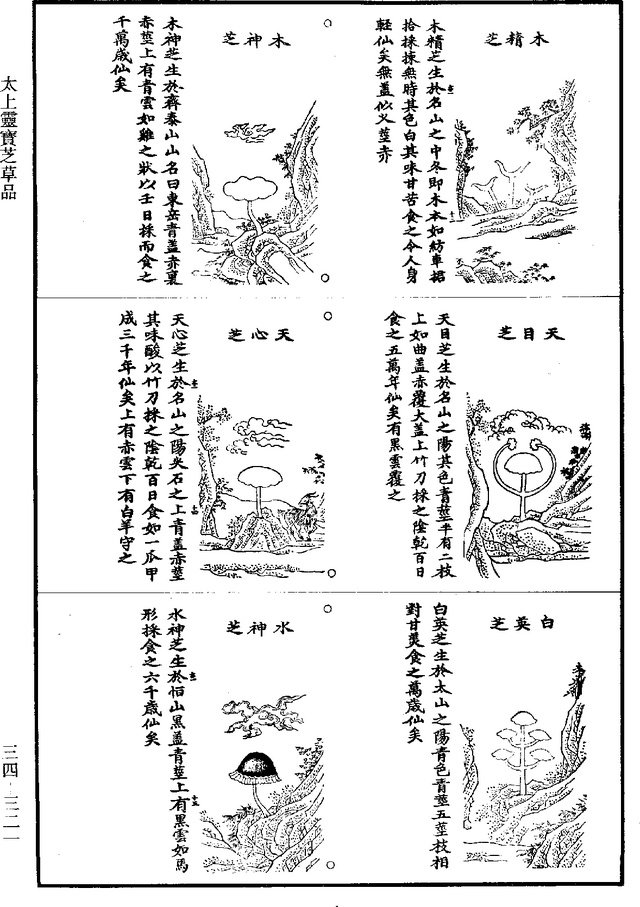 太上靈寶芝草品
三四-三二一
木精芝
木精芝生於名山之中冬即木本如紡車抬
拾採揀無時其色白其味甘苦食之令人身
輕仙矣無盖似义莖赤
木神芝
木神芝生於齊泰山山名曰東岳青盖赤裏
赤莖上有青雲如雞之狀以壬日採而食之
千萬歲仙矣
天目芝
天目芝生於名山之陽其色青莖半有二枝
上如曲盖赤覆大盖上竹刀採之陰乾百日
食之五萬年仙矣有黑雲覆之
天心芝
天心芝生於名山之陽矢石之上青盖赤莖
其味酸以竹刀採之陰乾百日食如一爪甲
成三千年仙矣上有赤雲下有白羊守之
白英芝
白英芝生於太山之陽青色青莖五莖枝相
對甘美食之萬歲仙矣
水神芝
水神芝生於恒山黑盖青莖上有黑雲如馬
形採食之六千歲仙矣